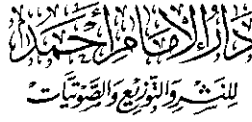 دار الإمام أحمد
للنشر والتوزيع والصوتيات